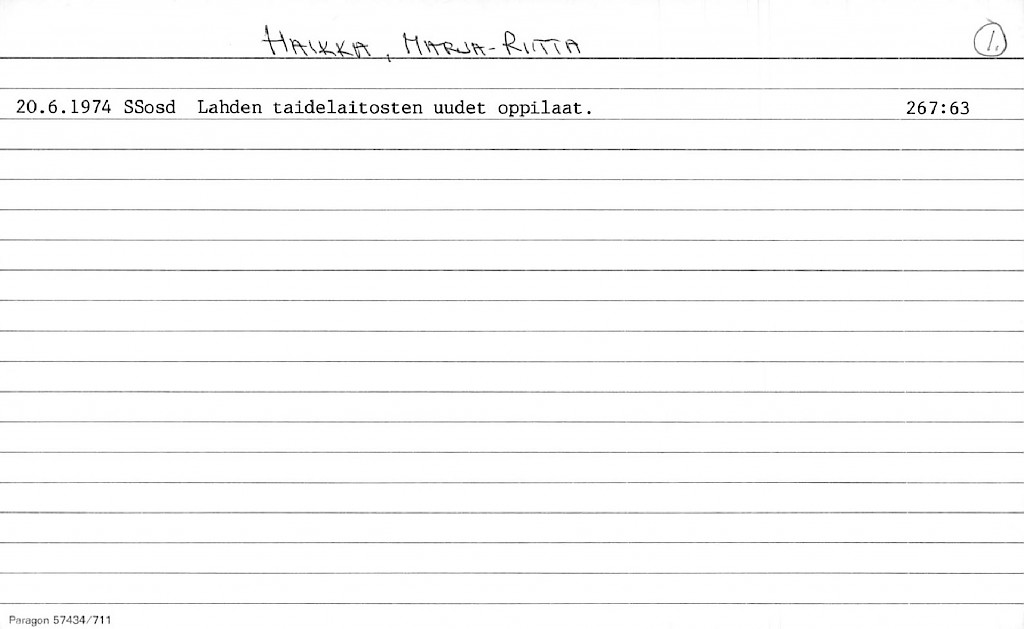 HAIKKA, MARJA-RIITTA 1.
20.6.1974 SSosd Lahden taidelaitosten uudet oppilaat. 267:63
Paragon 57434/711